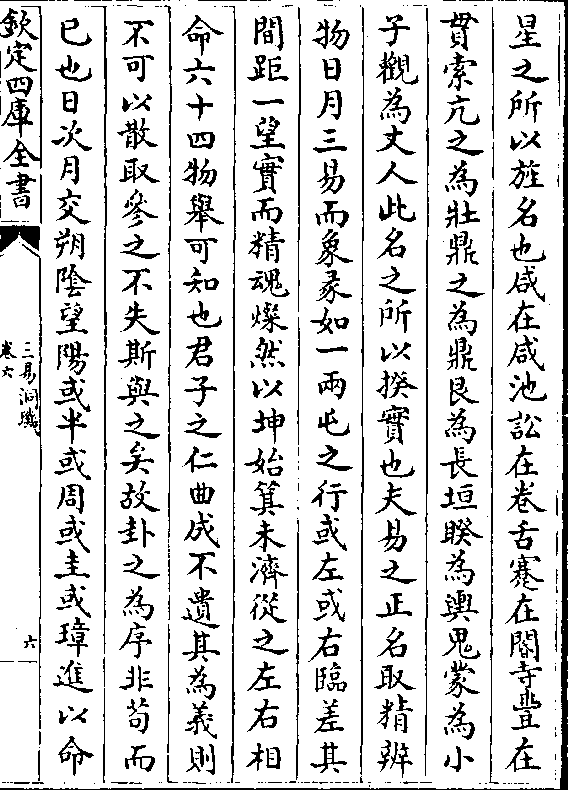 星之所以旌名也咸在咸池訟在卷舌蹇在閽寺豐在
貫索亢之為壯鼎之為鼎艮為長垣睽為輿鬼蒙為小
子觀為丈人此名之所以揆實也夫易之正名取精辨
物日月三易而象彖如一兩屯之行或左或右臨差其
間距一望實而精魂燦然以坤始箕未濟從之左右相
命六十四物舉可知也君子之仁曲成不遺其為義則
不可以散取參之不失斯與之矣故卦之為序非苟而
已也日次月交朔陰望陽或半或周或圭或璋進以命
欽定四庫全書
三易洞璣
卷六
六